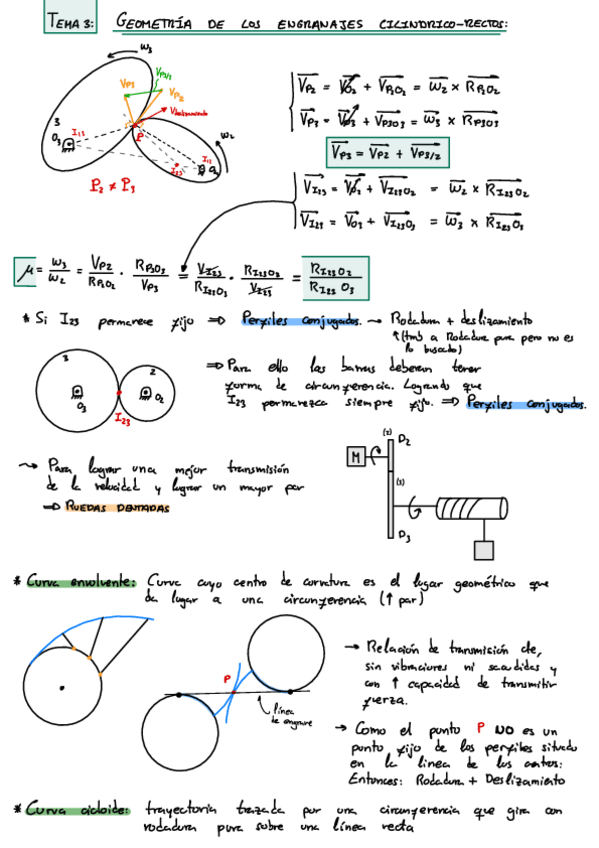 TEMA 3: GEOMETRÍA DE LOS ENGRANAJES CILINDRICO-RECTOS:
ω3
VP3/2
VP3
VP2
Vdeslizamiento
3
O3
I13
P
ω2
I12
I23
O2
P2 ≠ P3
VP2 = VO2 + VP2O2 = ω2 × RP2O2
VP3 = VO3 + VP3O3 = ω3 × RP3O3
VP3 = VP2 + VP3/2
VI23 = VO2 + VI23O2 = ω2 × RI23O2
VI23 = VO3 + VI23O3 = ω3 × RI23O3
μ = ω3/ω2 = VP3/RP2O2 · RP2O3/VP3 = VI23/RI23O3 · RI23O2/VI23 = RI23O2/RI23O3
* Si I23 permanece fijo ⇒ Perfiles conjugados. → Rodadura + deslizamiento
↑(tmb a Rodadura pura pero no es
lo buscado)
3
2
O3
O2
I23
⇒ Para ello las barras deberan tener
forma de circunferencia. Logrando que
I23 permanezca siempre fijo. ⇒ Perfiles conjugados.
(2)
D2
M
(3)
D3
⤳ Para lograr una mejor transmisión
de la velocidad y lograr un mayor par
⇒ RUEDAS DENTADAS
* Curva envolvente: Curva cuyo centro de curvatura es el lugar geométrico que
da lugar a una circunferencia (↑ par)
P
línea
de engrane
→ Relación de transmisión cte,
sin vibraciones ni sacudidas y
con ↑ capacidad de transmitir
fuerza.
→ Como el punto P NO es un
punto fijo de los perfiles situado
en la linea de los centros:
Entonces: Rodadura + Deslizamiento
* Curva cicloide: trayectoria trazada por una circunferencia que gira con
rodadura pura sobre una línea recta